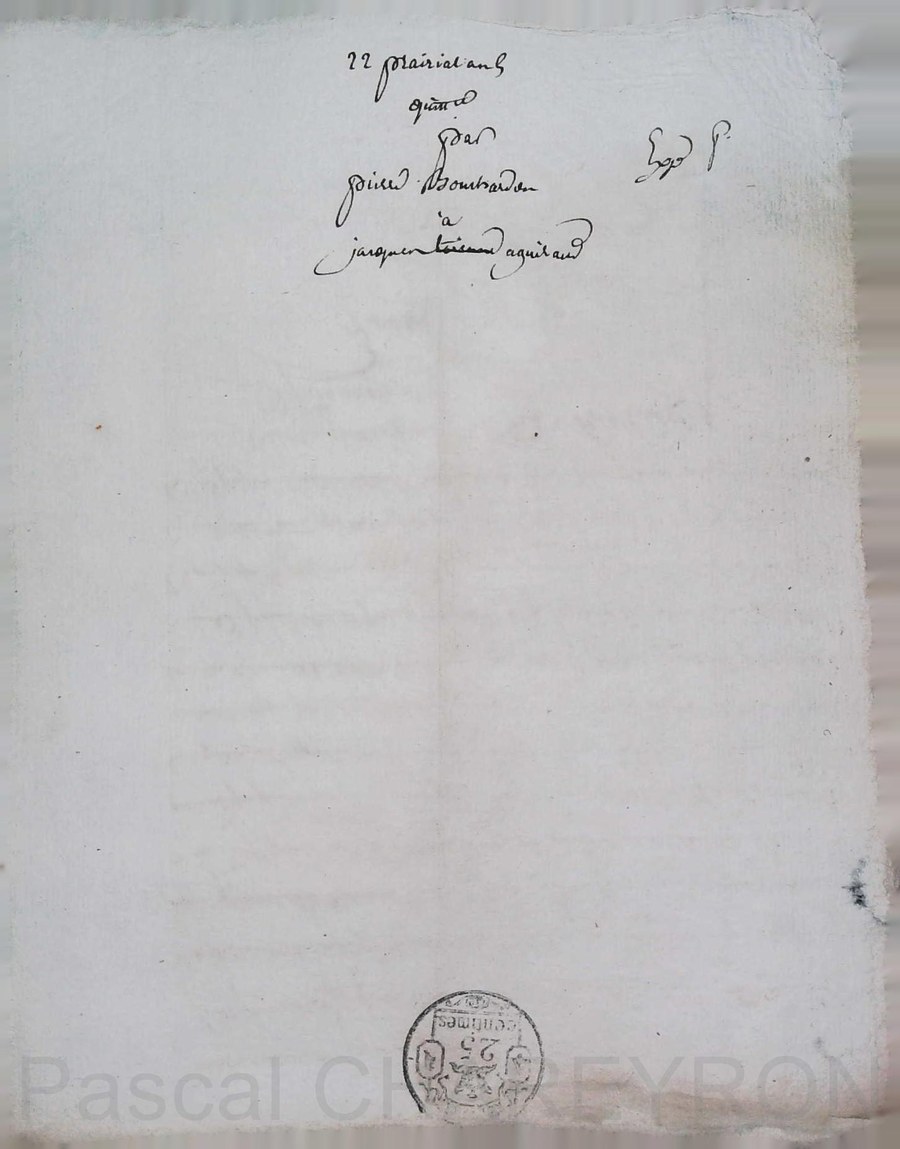 22 prairial an 5
quitt ce
par
pierre Bombardon
à
jacques aguiraud
Expé
25
centimes
Pascal CHAREYRON